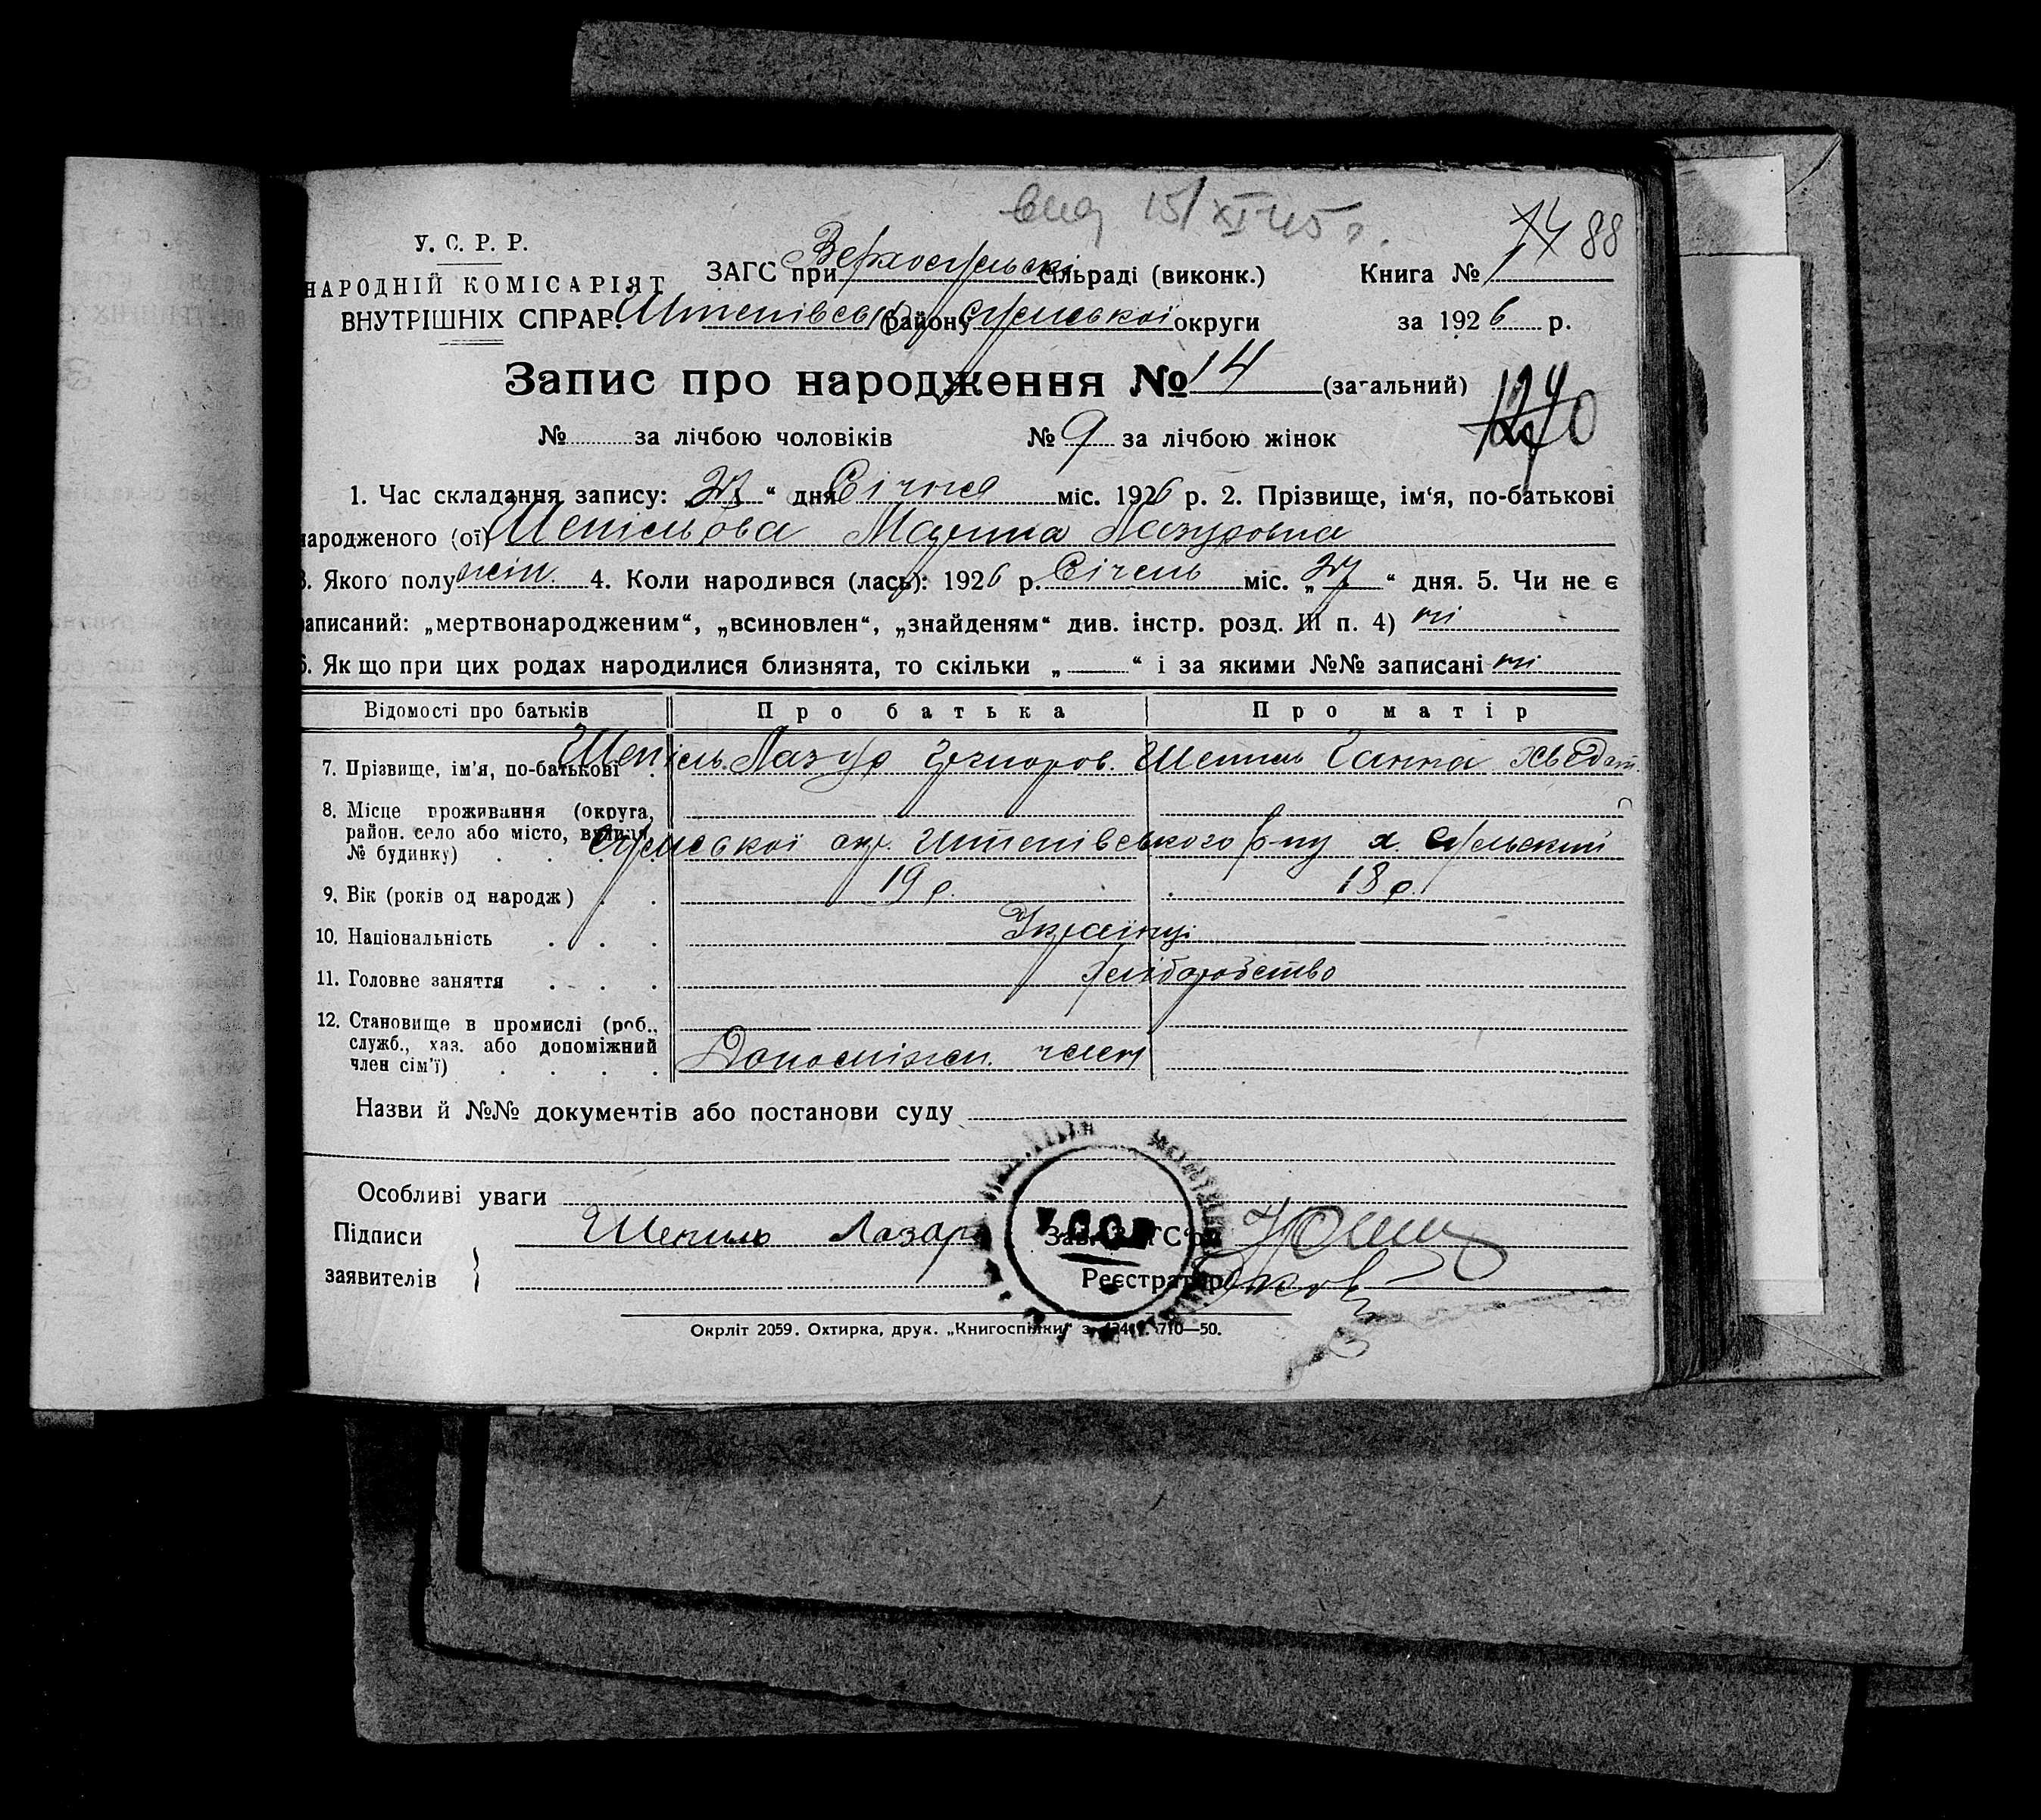 вид 15/XI 45 р.
У. С. Р. Р.
НАРОДНІЙ КОМІСАРІЯТ
ВНУТРІШНІХ СПРАВ.
ЗАГС при Верхосульські сільраді (виконк.)
Штепівськ району Сумської округи
Книга № 1 88
за 1926 р.
Запис про народження № 14 (загальний)
№ за лічбою чоловіків № 9 за лічбою жінок
1. Час складання запису: 27 “ дня Січня міс. 1926 р. 2. Прізвище, ім‘я, по-батькові
народженого (ої) Шепільова Мари́на Лазуровна
3. Якого полу жін. 4. Коли народився (лась): 1926 р. Січень міс. „ 27 “ дня. 5. Чи не є
записаний: „мертвонародженим“, „всиновлен“, „знайденям“ див. інстр. розд. III п. 4) ні
6. Якщо при цих родах народилися близнята, то скільки „ “ і за якими №№ записані ні
Відомості про батьків Про батька Про матір
7. Прізвище, ім‘я, по-батькові Шепіль Лазур Шепиль Ганна Хведот.
8. Місце проживання (округа,
район, село або місто, вулиця,
№ будинку) Сумської окр. Штепівського р-ну х. Сульский
9. Вік (років од народж) 19 р. 18 р.
10. Національність Українці
11. Головне заняття хліборобство
12. Становище в промислі (роб.,
служб., хаз. або допоміжний
член сім‘ї) Допоміжн. член
Назви й №№ документів або постанови суду
Особливі уваги
Підписи Шепиль Лазар Зав. ЗАГС‘ом
заявителів Реєстратор
Окрліт 2059. Охтирка, друк. „Книгоспілки“ 710—50.